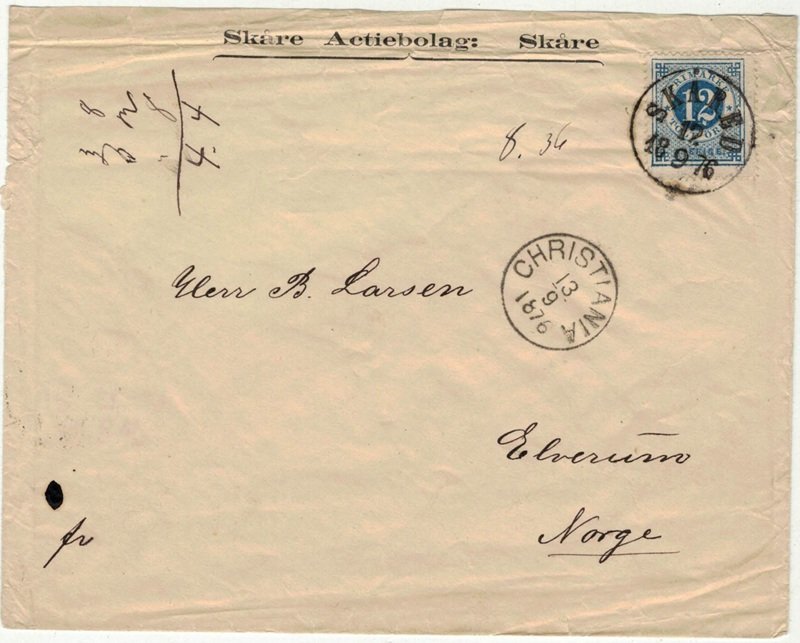 Skåre Actiebolag: Skåre
FRIMÄRKE
12
SKÅRE
12
9
1876
8. 36
4.4
CHRISTIANIA
13
9
1876
Herr B. Larsen
Elverum
Norge
fr